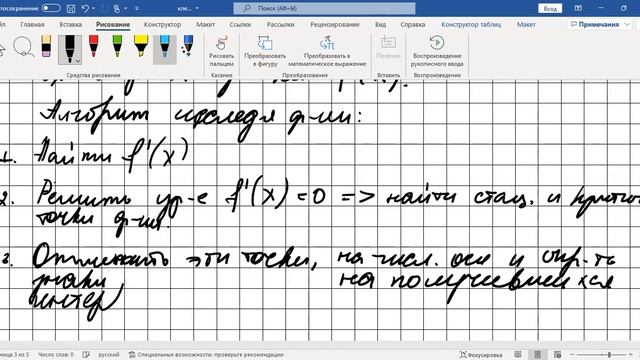 втосохранение
кле...
Поиск (Alt+Ы)
Вставка Рисование Конструктор Макет Ссылки Рассылки Рецензирование Вид Разработчик Справка Конструктор таблиц Макет Примечания
Рисовать пальцем
Преобразовать в фигуру
Преобразовать в математическое выражение
Полотно
Воспроизведение рукописного ввода
Средства рисования Касание Преобразование Вставить Воспроизведение
Алгоритм исследя ф-ии:
1. Найти f'(x)
2. Решить ур-е f'(x)=0 => найти стац. и
точки ф-ии.
3. Отложить эти точки, на числ. оси и опр-ть
знаки на получившихся
интер
ница 3 из 5 Число слов: 0 русский Специальные возможности: проверьте рекомендации Фокусировка